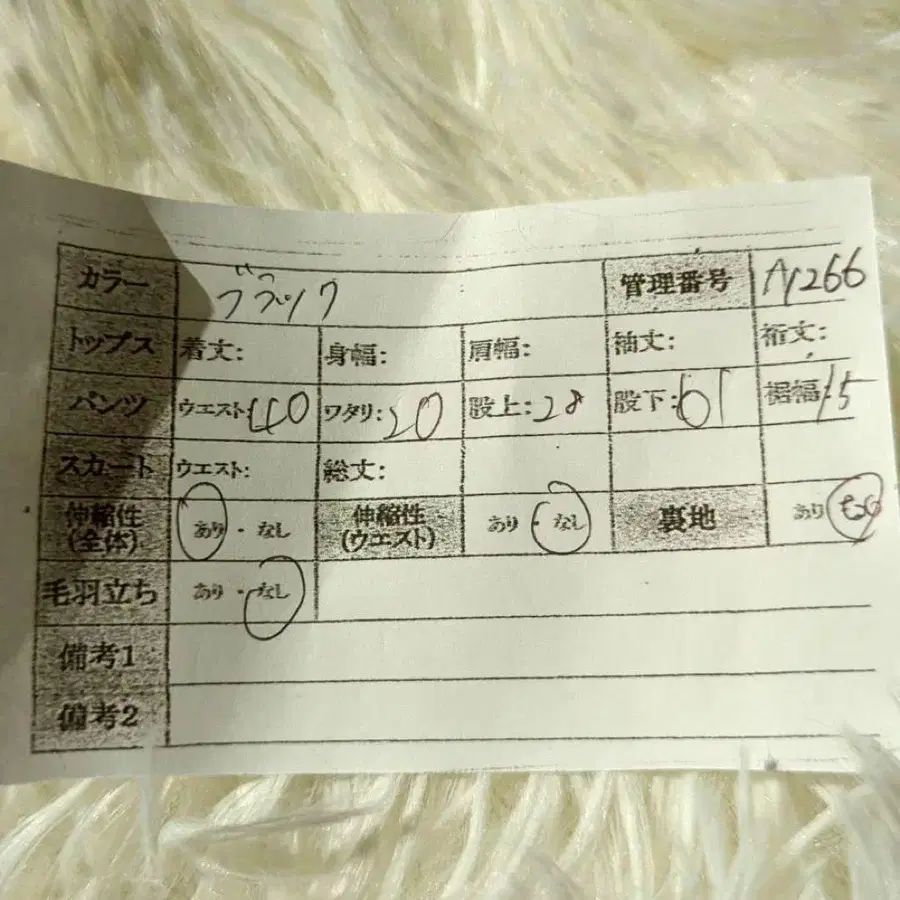 カラー ブラック 管理番号 A1266
トップス 着丈: 身幅: 肩幅: 袖丈: 裄丈:
パンツ ウエスト:40 ワタリ:20 股上:28 股下:61 裾幅15
スカート ウエスト: 総丈:
伸縮性(全体) あり・なし 伸縮性(ウエスト) あり・なし 裏地 あり なし
毛羽立ち あり・なし
備考1
備考2